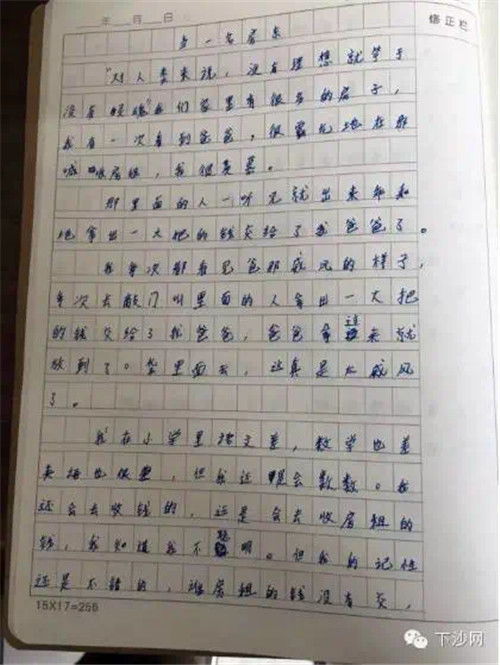 年 月 日
修正栏
当一名房东
“对人类来说，没有理想就等于
没有顿魂”我们家里有很多的房子，
我有一次看到爸爸，很霸气地在
喊 房租，我很羡慕。
那里面的人一听见就出来乖乖
地拿出一大把的钱交给了我爸爸了。
我每次都看见爸那威风的样子，
每次去敲门叫里面的人拿出一大把
的钱交给了我爸爸，爸爸拿过来就
放到了 袋里面去，这真是太威风
了。
我在小学里语文差，数学也差
英语也很 ，但我还是会数数。我
还会去收钱的，还是会去收房租的
钱，我知道我不聪明。但我的记性
还是不错的，谁房租的钱没有交，
15X17=255
下沙网